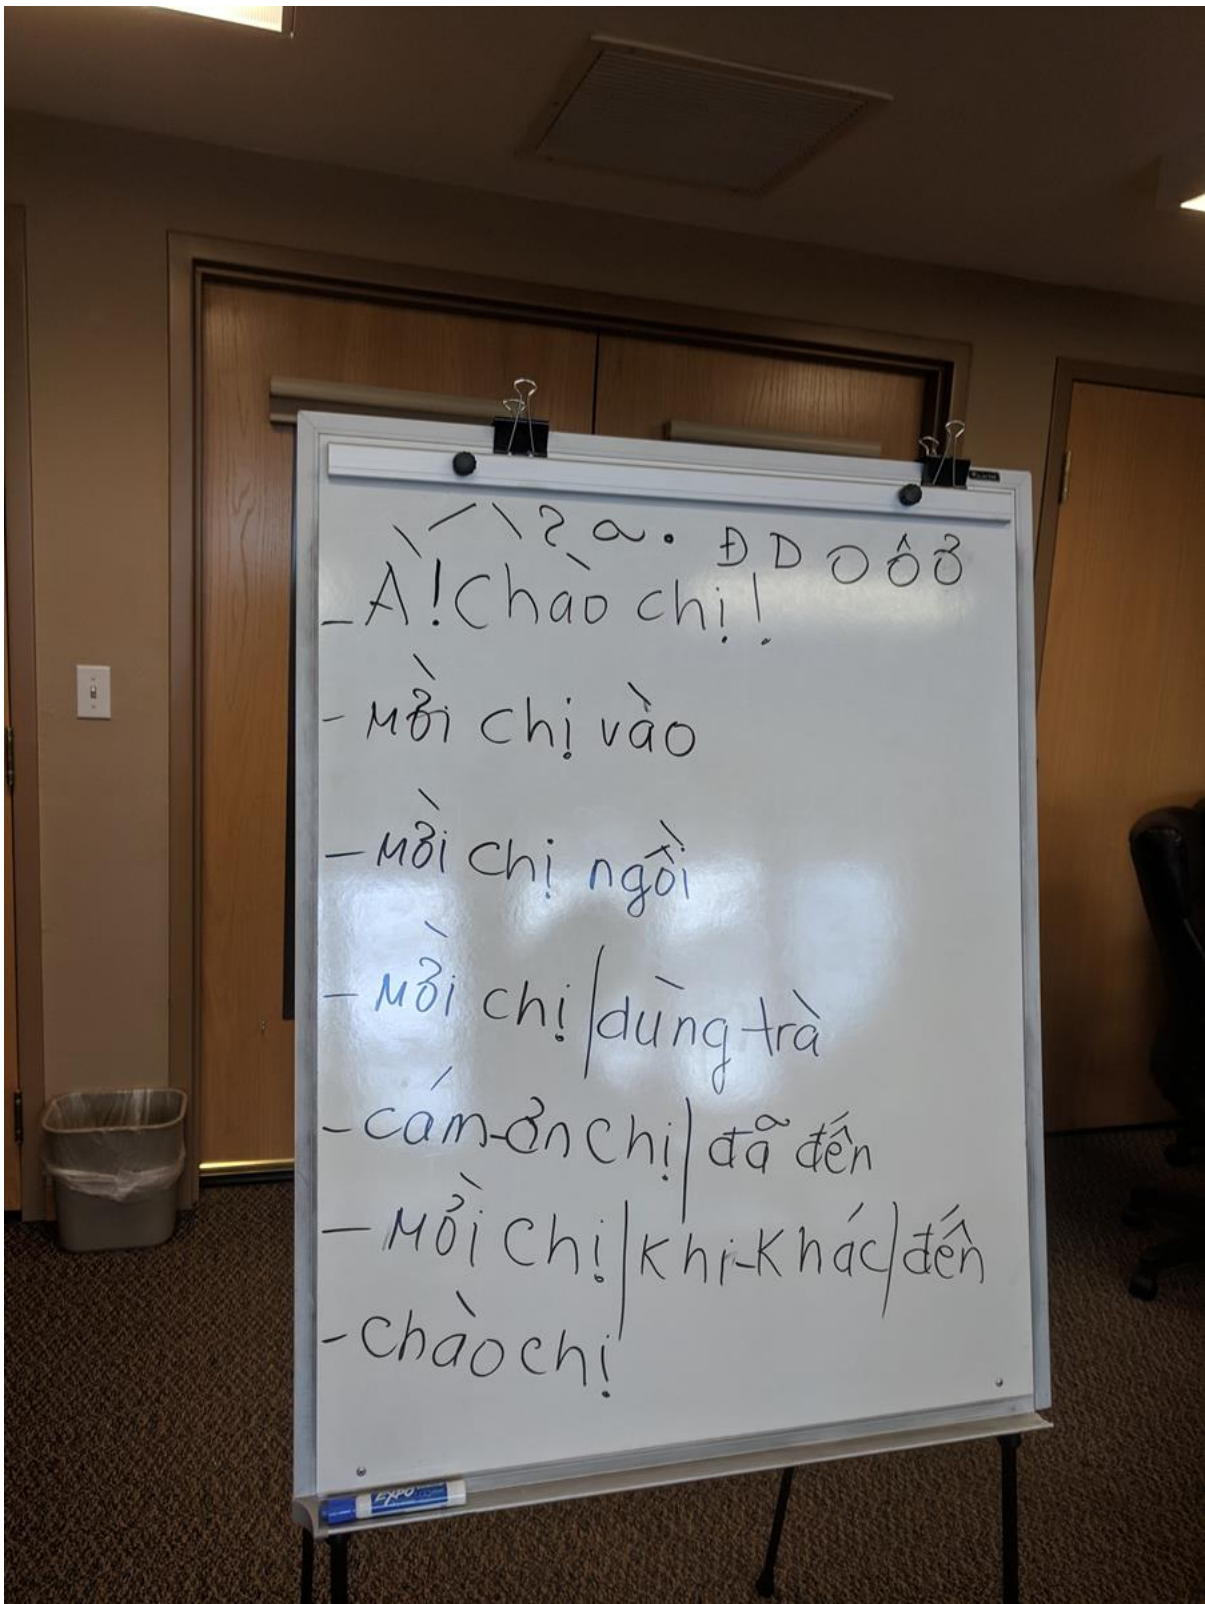 ´ ` ? ~ . Đ D O Ô Ơ
- À! Chào chị!
- Mời chị vào
- Mời chị ngồi
- Mời chị/dùng trà
- Cám-ơn chị/đã đến
- Mời chị/khi-khác/đến
- Chào chị
EXPO